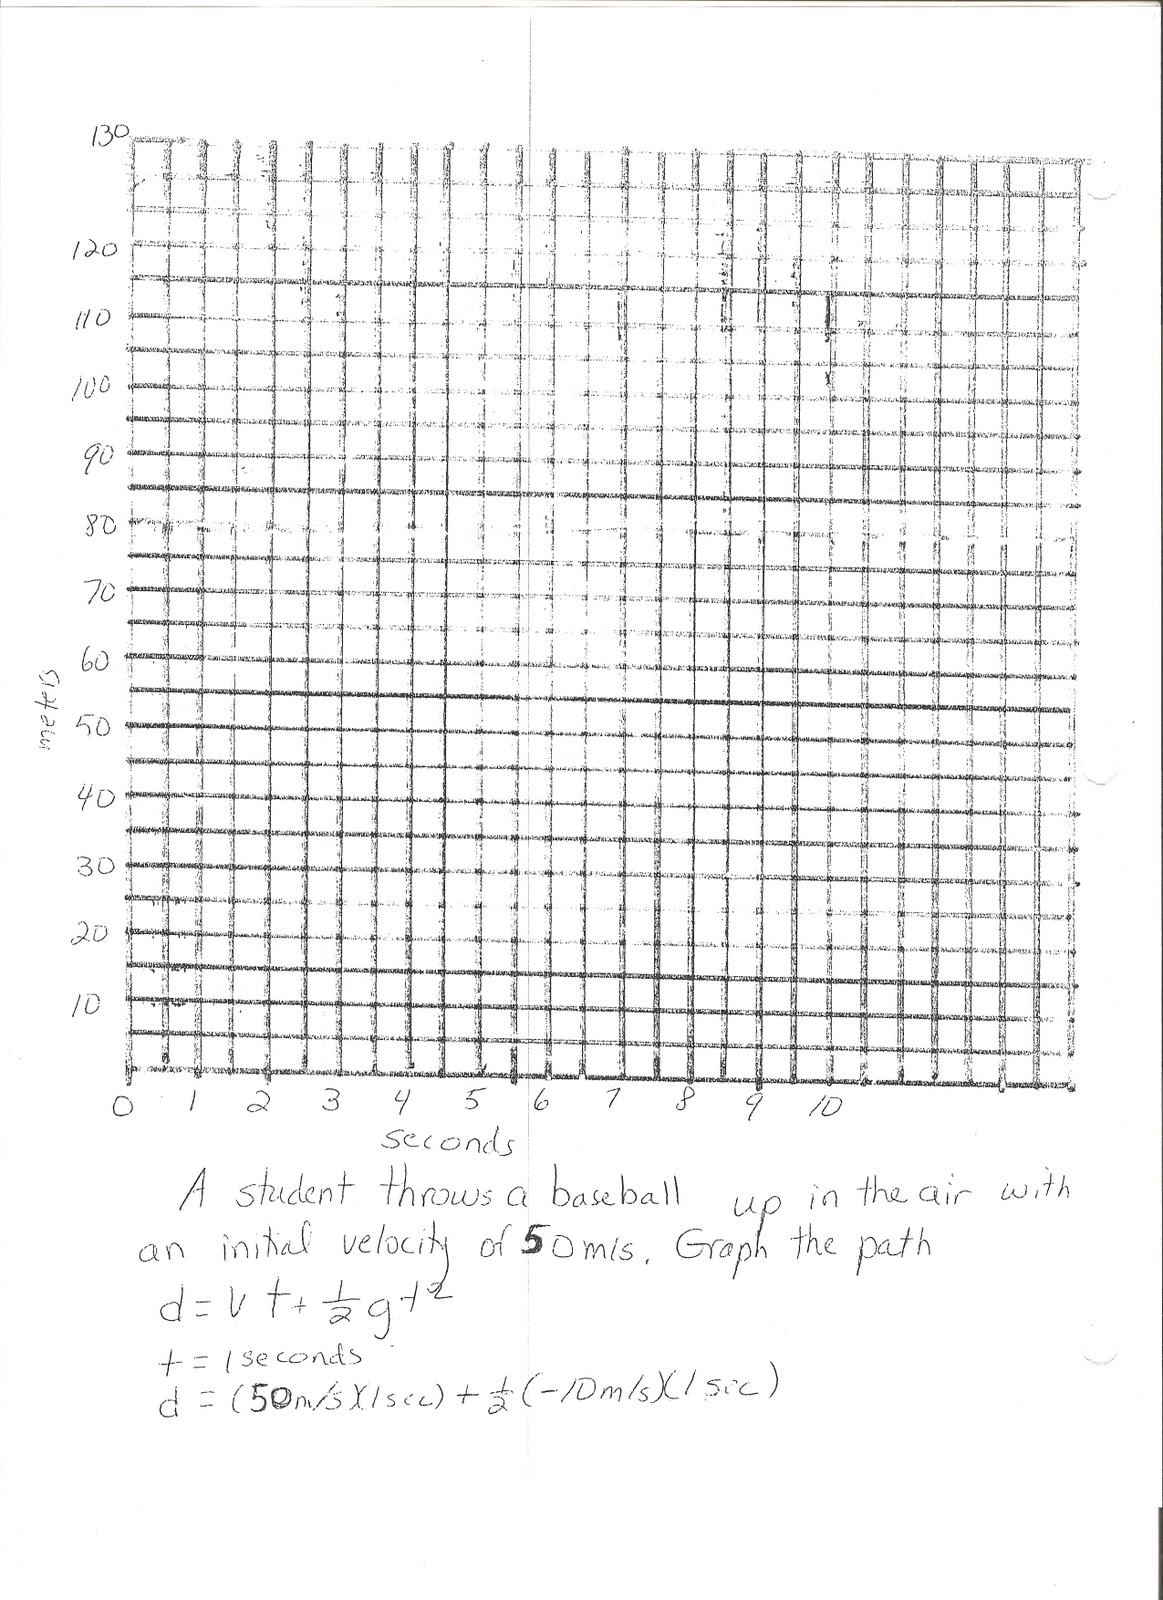 130
120
110
100
90
80
70
60
meters
50
40
30
20
10
0 1 2 3 4 5 6 7 8 9 10
seconds
A student throws a baseball up in the air with
an initial velocity of 50m/s. Graph the path
d = V t + 1/2 g t²
t = 1 seconds
d = (50m/s)(1sec) + 1/2 (-10m/s)(1 sec)